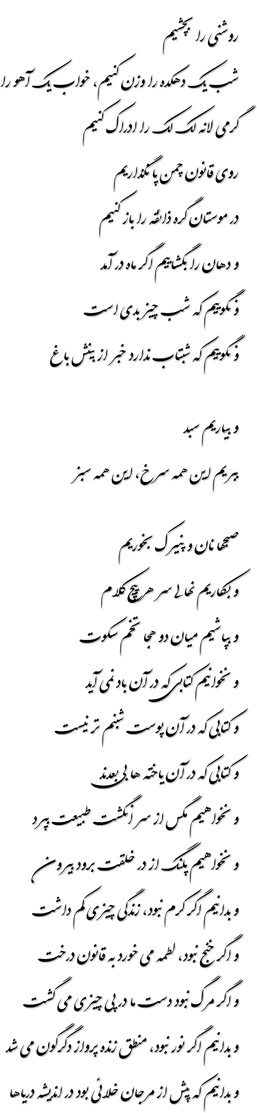 روشنی را بچشیم
شب یک دهکده را وزن کنیم، خواب یک آهو را
گرمی لانه لک لک را ادراک کنیم
روی قانون چمن پا نگذاریم
در موستان گره ذائقه را باز کنیم
و دهان را بگشاییم اگر ماه در آمد
و نگوییم که شب چیز بدی است
و نگوییم که شبتاب ندارد خبر از بینش باغ
و بیاریم سبد
ببریم این همه سرخ، این همه سبز
صبحها نان و پنیرک بخوریم
و بکاریم نهالی سر هر پیچ کلام
و بپاشیم میان دو هجا تخم سکوت
و نخوانیم کتابی که در آن باد نمی آید
و کتابی که در آن پوست شبنم تر نیست
و کتابی که در آن یاخته ها بی بعدند
و نخواهیم مگس از سر انگشت طبیعت بپرد
و نخواهیم پلنگ از در خلقت برود بیرون
و بدانیم اگر کرم نبود، زندگی چیزی کم داشت
و اگر خنج نبود، لطمه می خورد به قانون درخت
و اگر مرگ نبود دست ما در پی چیزی می گشت
و بدانیم اگر نور نبود، منطق زنده پرواز دگرگون می شد
و بدانیم که پیش از مرجان خلائی بود در اندیشه دریاها